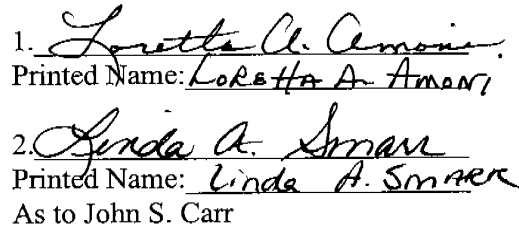 1. Loretta A. Amoni
Printed Name: LORETTA A AMONI
2. Linda A. Smarr
Printed Name: Linda A. SMARR
As to John S. Carr